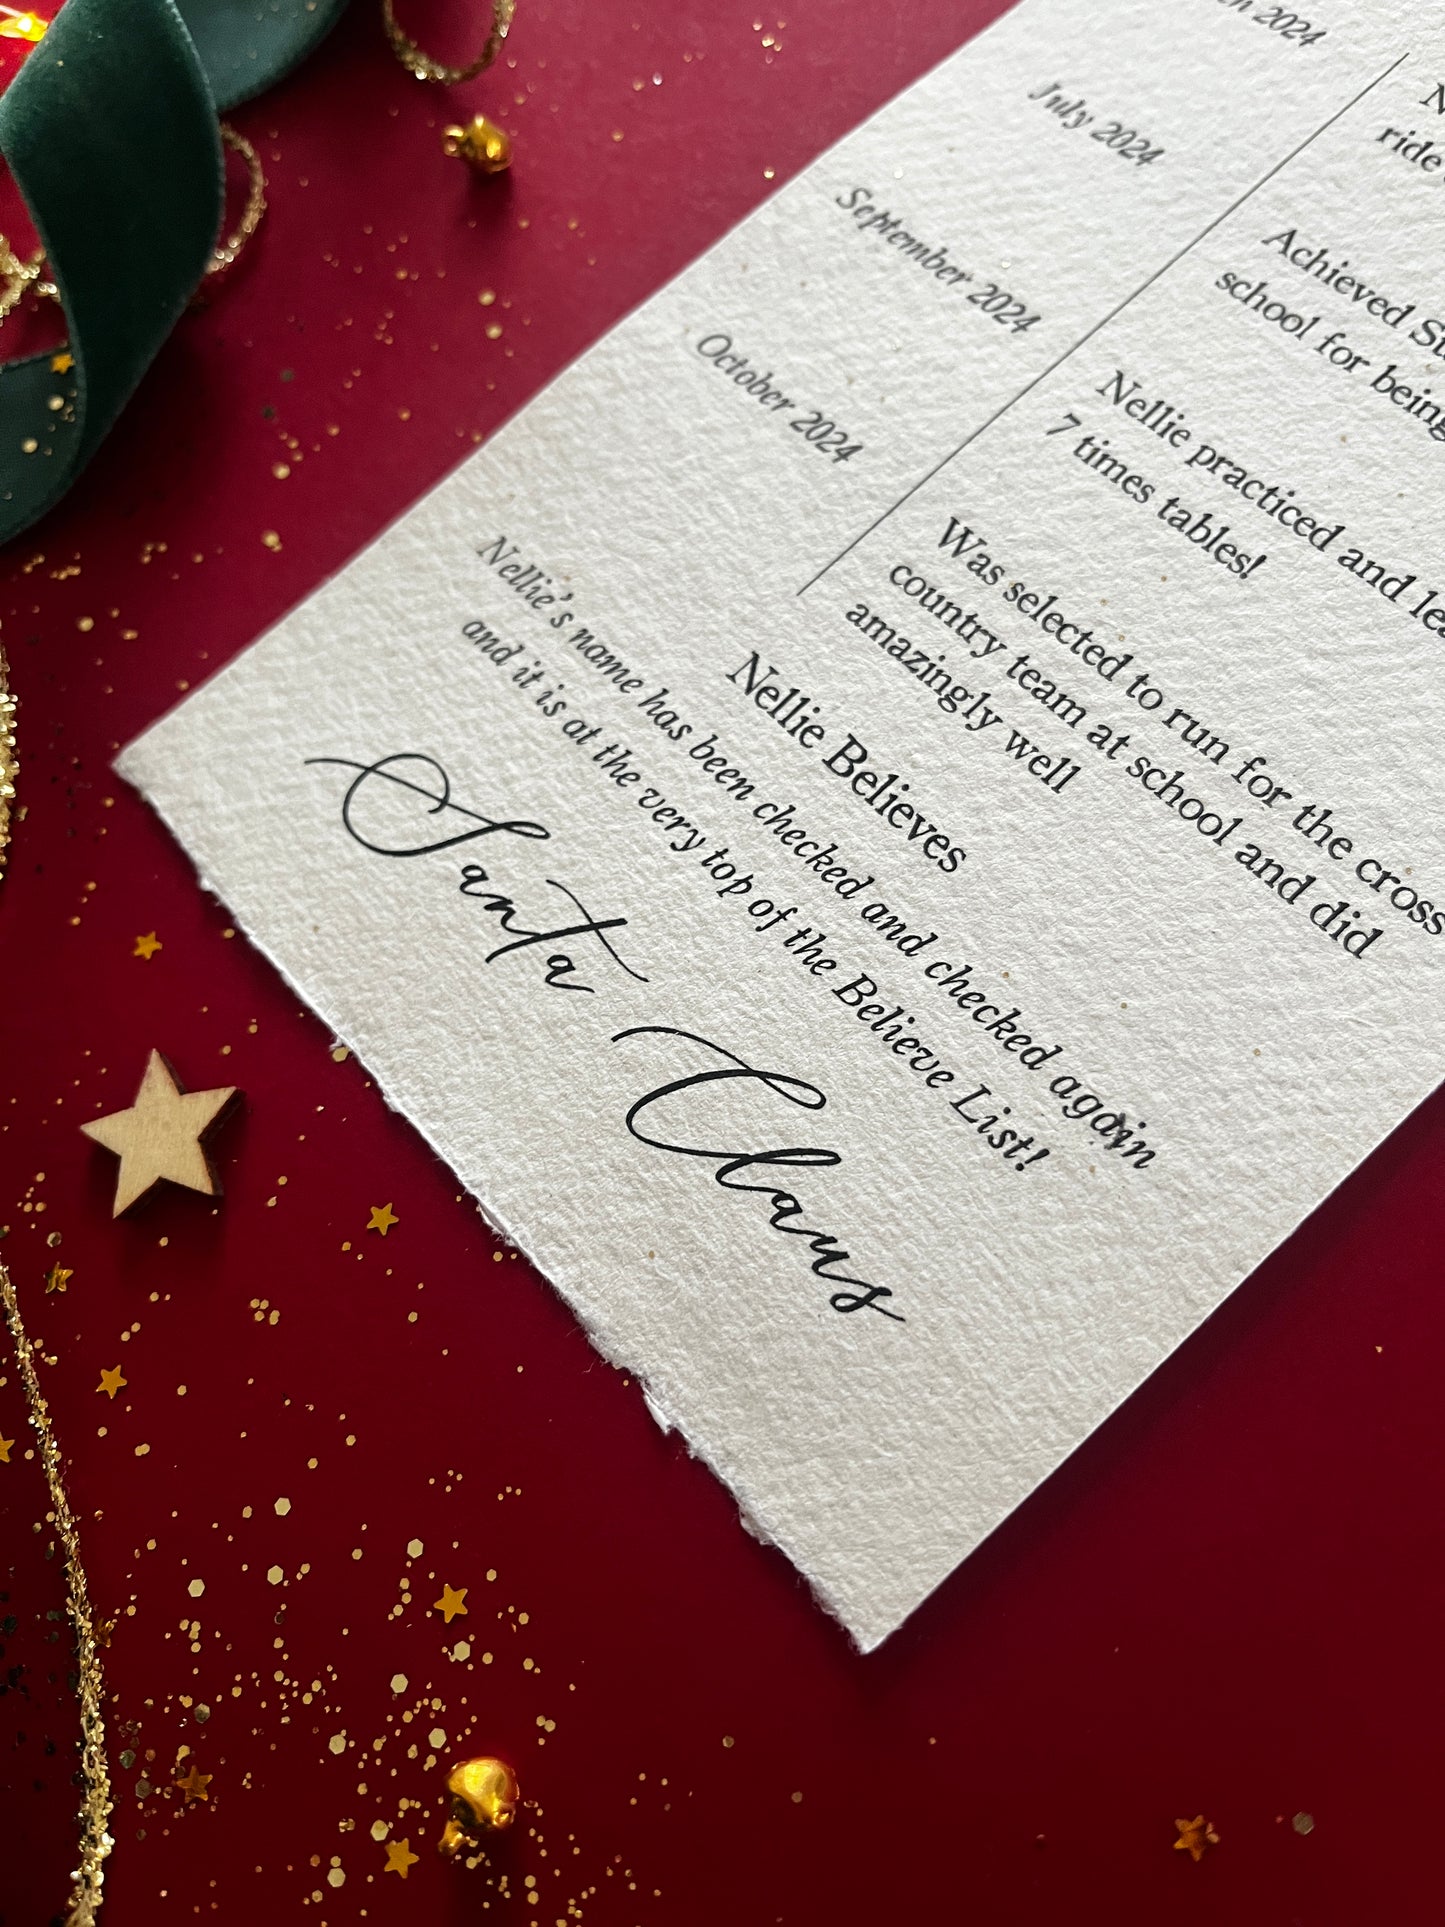 2024
N
ride
July 2024
Achieved
school for being
September 2024
Nellie practiced and
7 times tables!
October 2024
Was selected to run for the cross
country team at school and did
amazingly well
Nellie Believes
Nellie's name has been checked and checked again
and it is at the very top of the Believe List!
Santa Claus